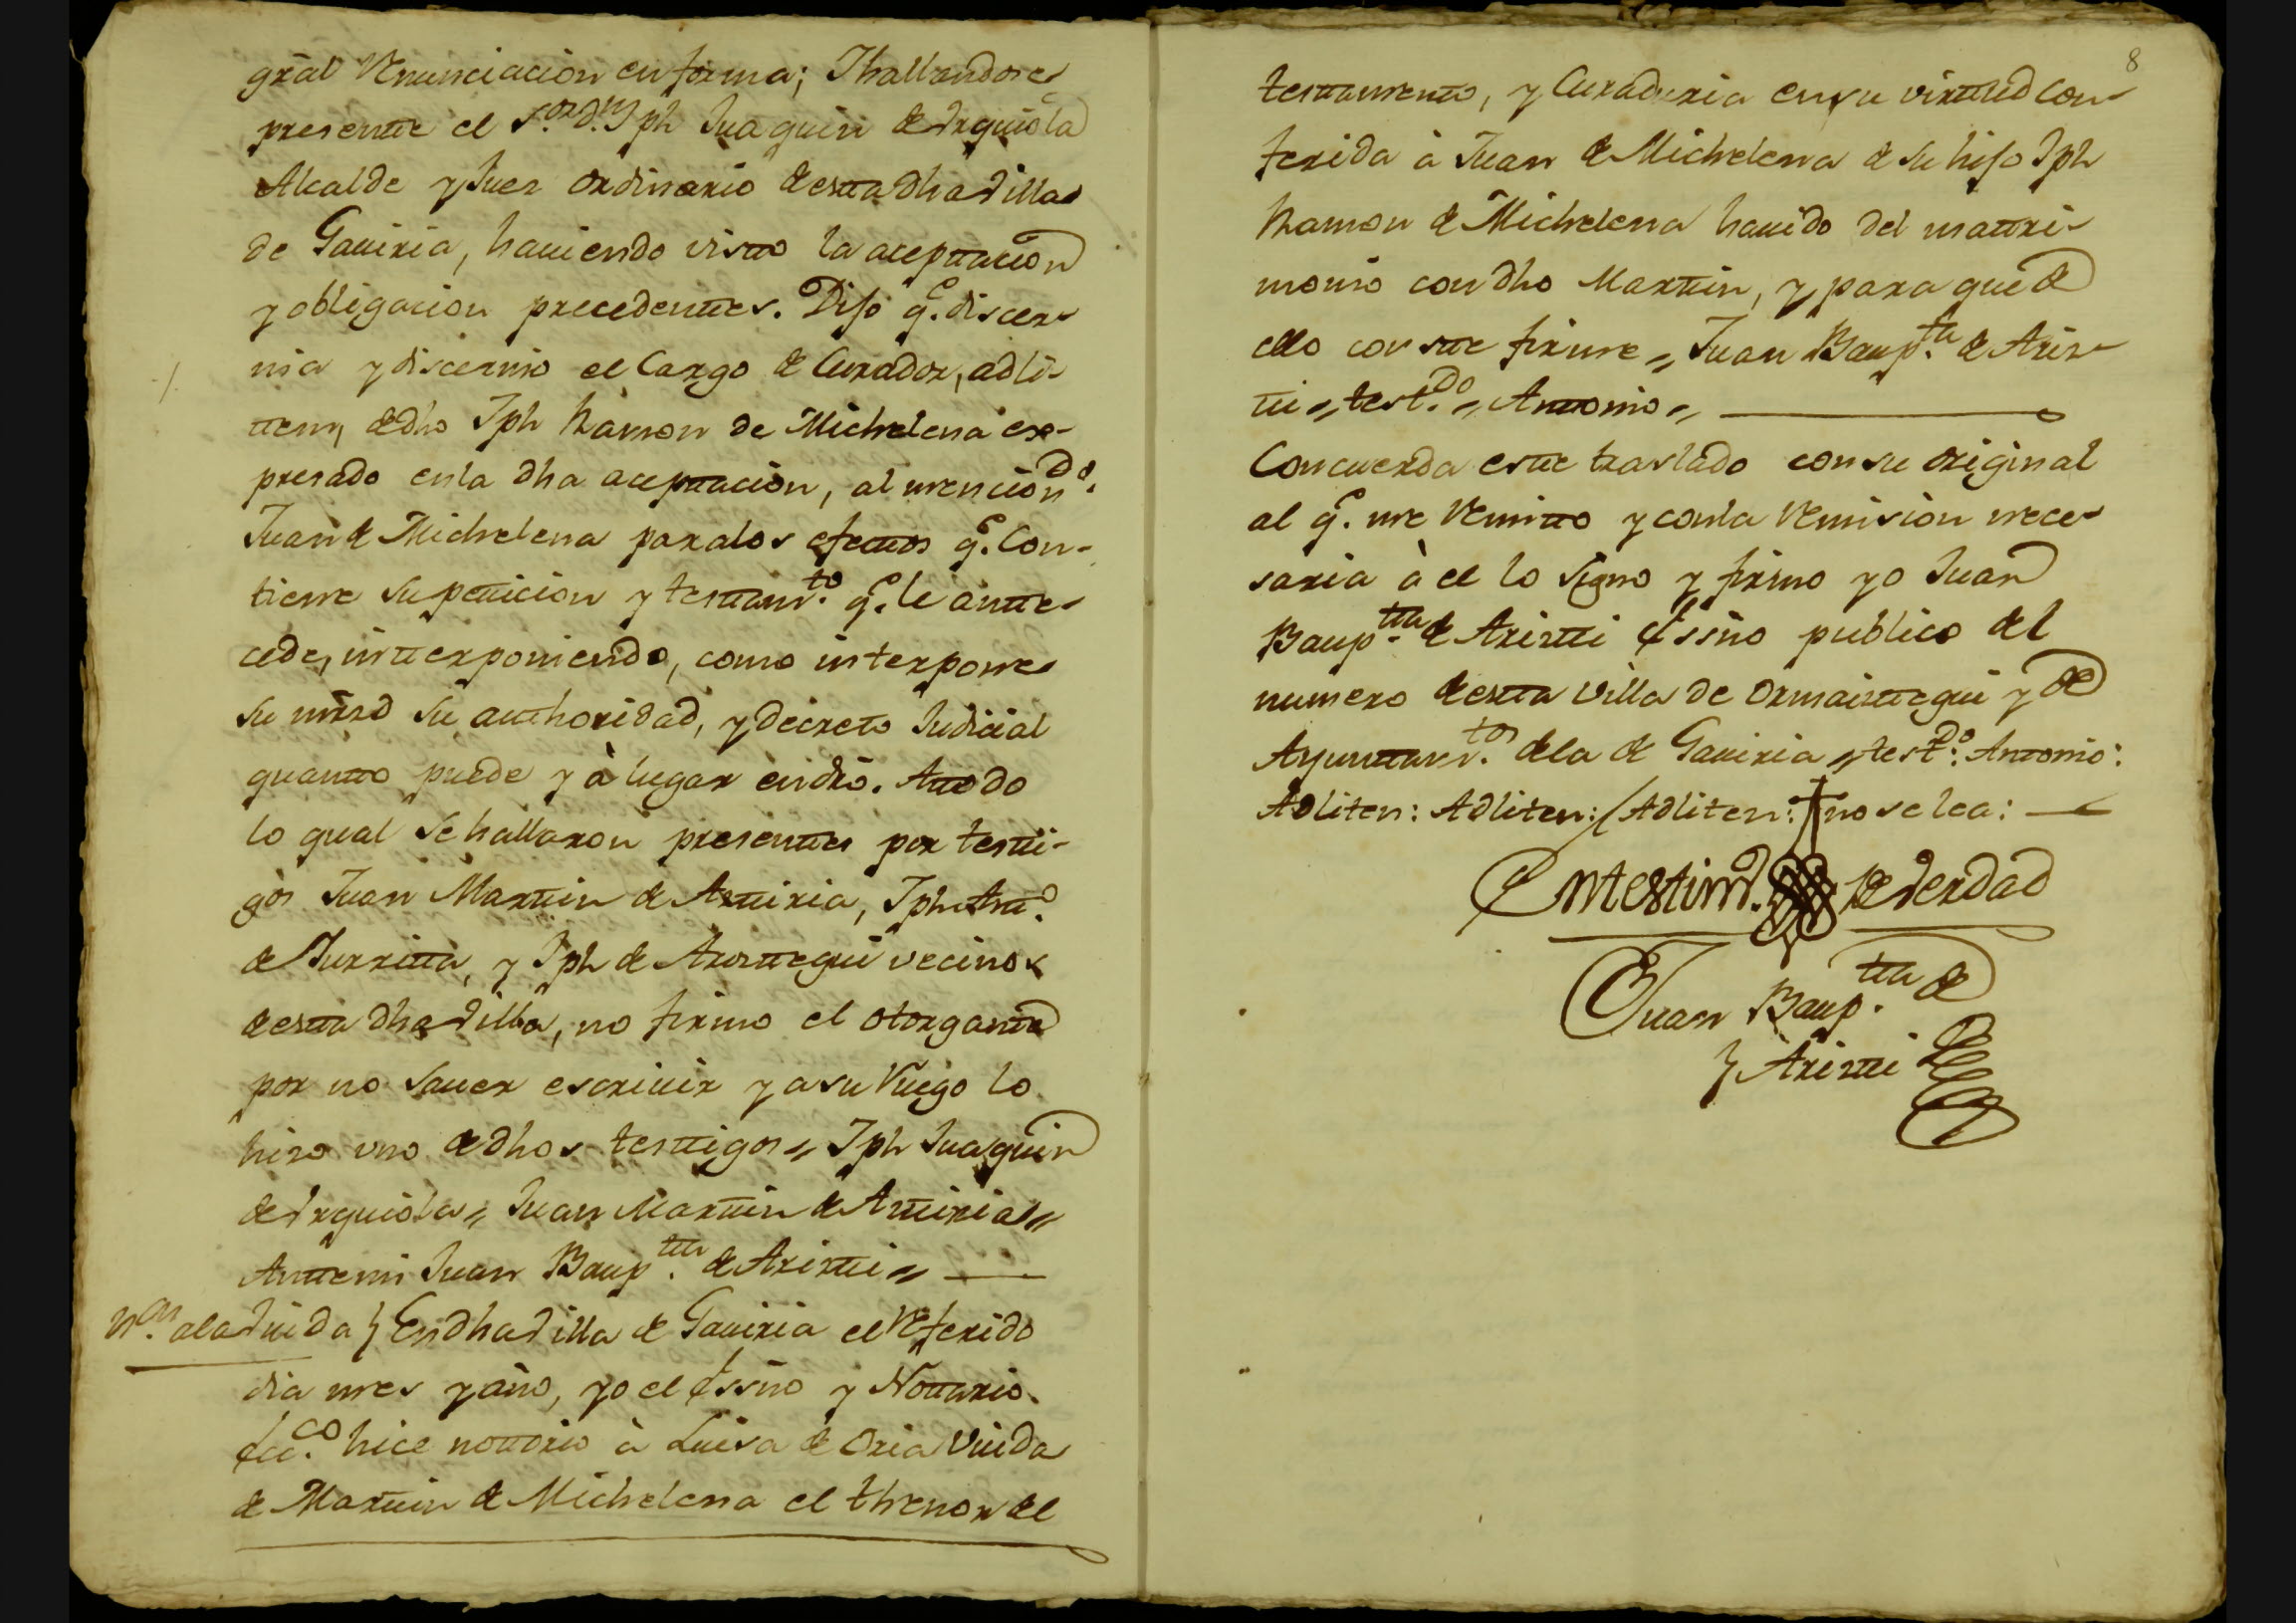 grãl Renunciacion en forma; Ihallandose
presentte el S.or D.n Jph Juaquin de Irquiola
Alcalde y Juez ordinario de estta dha Villa
de Gauiria, hauiendo vistto la acepttacion
y obligacion precedenttes. Dijo q.e discer-
nia y discernio el Cargo de Curador, ad li-
ttem, de dho Jph Ramon de Michelena ex-
presado en la dha acepttacion, al mencion.do
Juan de Michelena para los efecttos q.e Con-
tiene su petticion y testtam.to q.e le antte-
cede, intterponiendo, como interpone
su mrsd su authoridad, y decreto Judicial
quantto puede y à lugar en drõ. Attodo
lo qual se hallaron presenttes por testti-
gos Juan Marttin de Attiria, Jph Antt.o
de Iurritta, y Jph de Arosttegui vecinos
de estta dha Villa, no firmo el otorgantte
por no sauer escriuir y a su Ruego lo
hizo vno de dhos testtigos // Jph Juaquin
de Irquiola // Juan Marttin de Attiria //
Anttemi Juan Baup.tta de Aristti //
N.on ala Viuda } En dha Villa de Gauiria el Referido
dia mes y año, yo el Essño y Nottario
Ecc.co hice nottorio à Luisa de Oria Viuda
de Marttin de Michelena el thenor del
8
testtamentto, y Curaduria en su virttud con-
ferida à Juan de Michelena de su hijo Jph
Ramon de Michelena hauido del mattri-
monio con dho Marttin, y para que de
ello constte firme // Juan Baup.ta de Aris-
tti // test.do // Anttonio //
Concuerda estte traslado con su original
al q.e me Remitto y con la Remision nece-
saria à el lo signo y firmo yo Juan
Baup.tta de Aristti Essño publico del
numero de estta Villa de Ormaisttegui y de
Ayunttam.to de la de Gauiria // test.do Anttonio:
Adliten: Adliten: / Adliten: no se lea:
En testim.o de Verdad
Juan Baup.tta de
Aristti